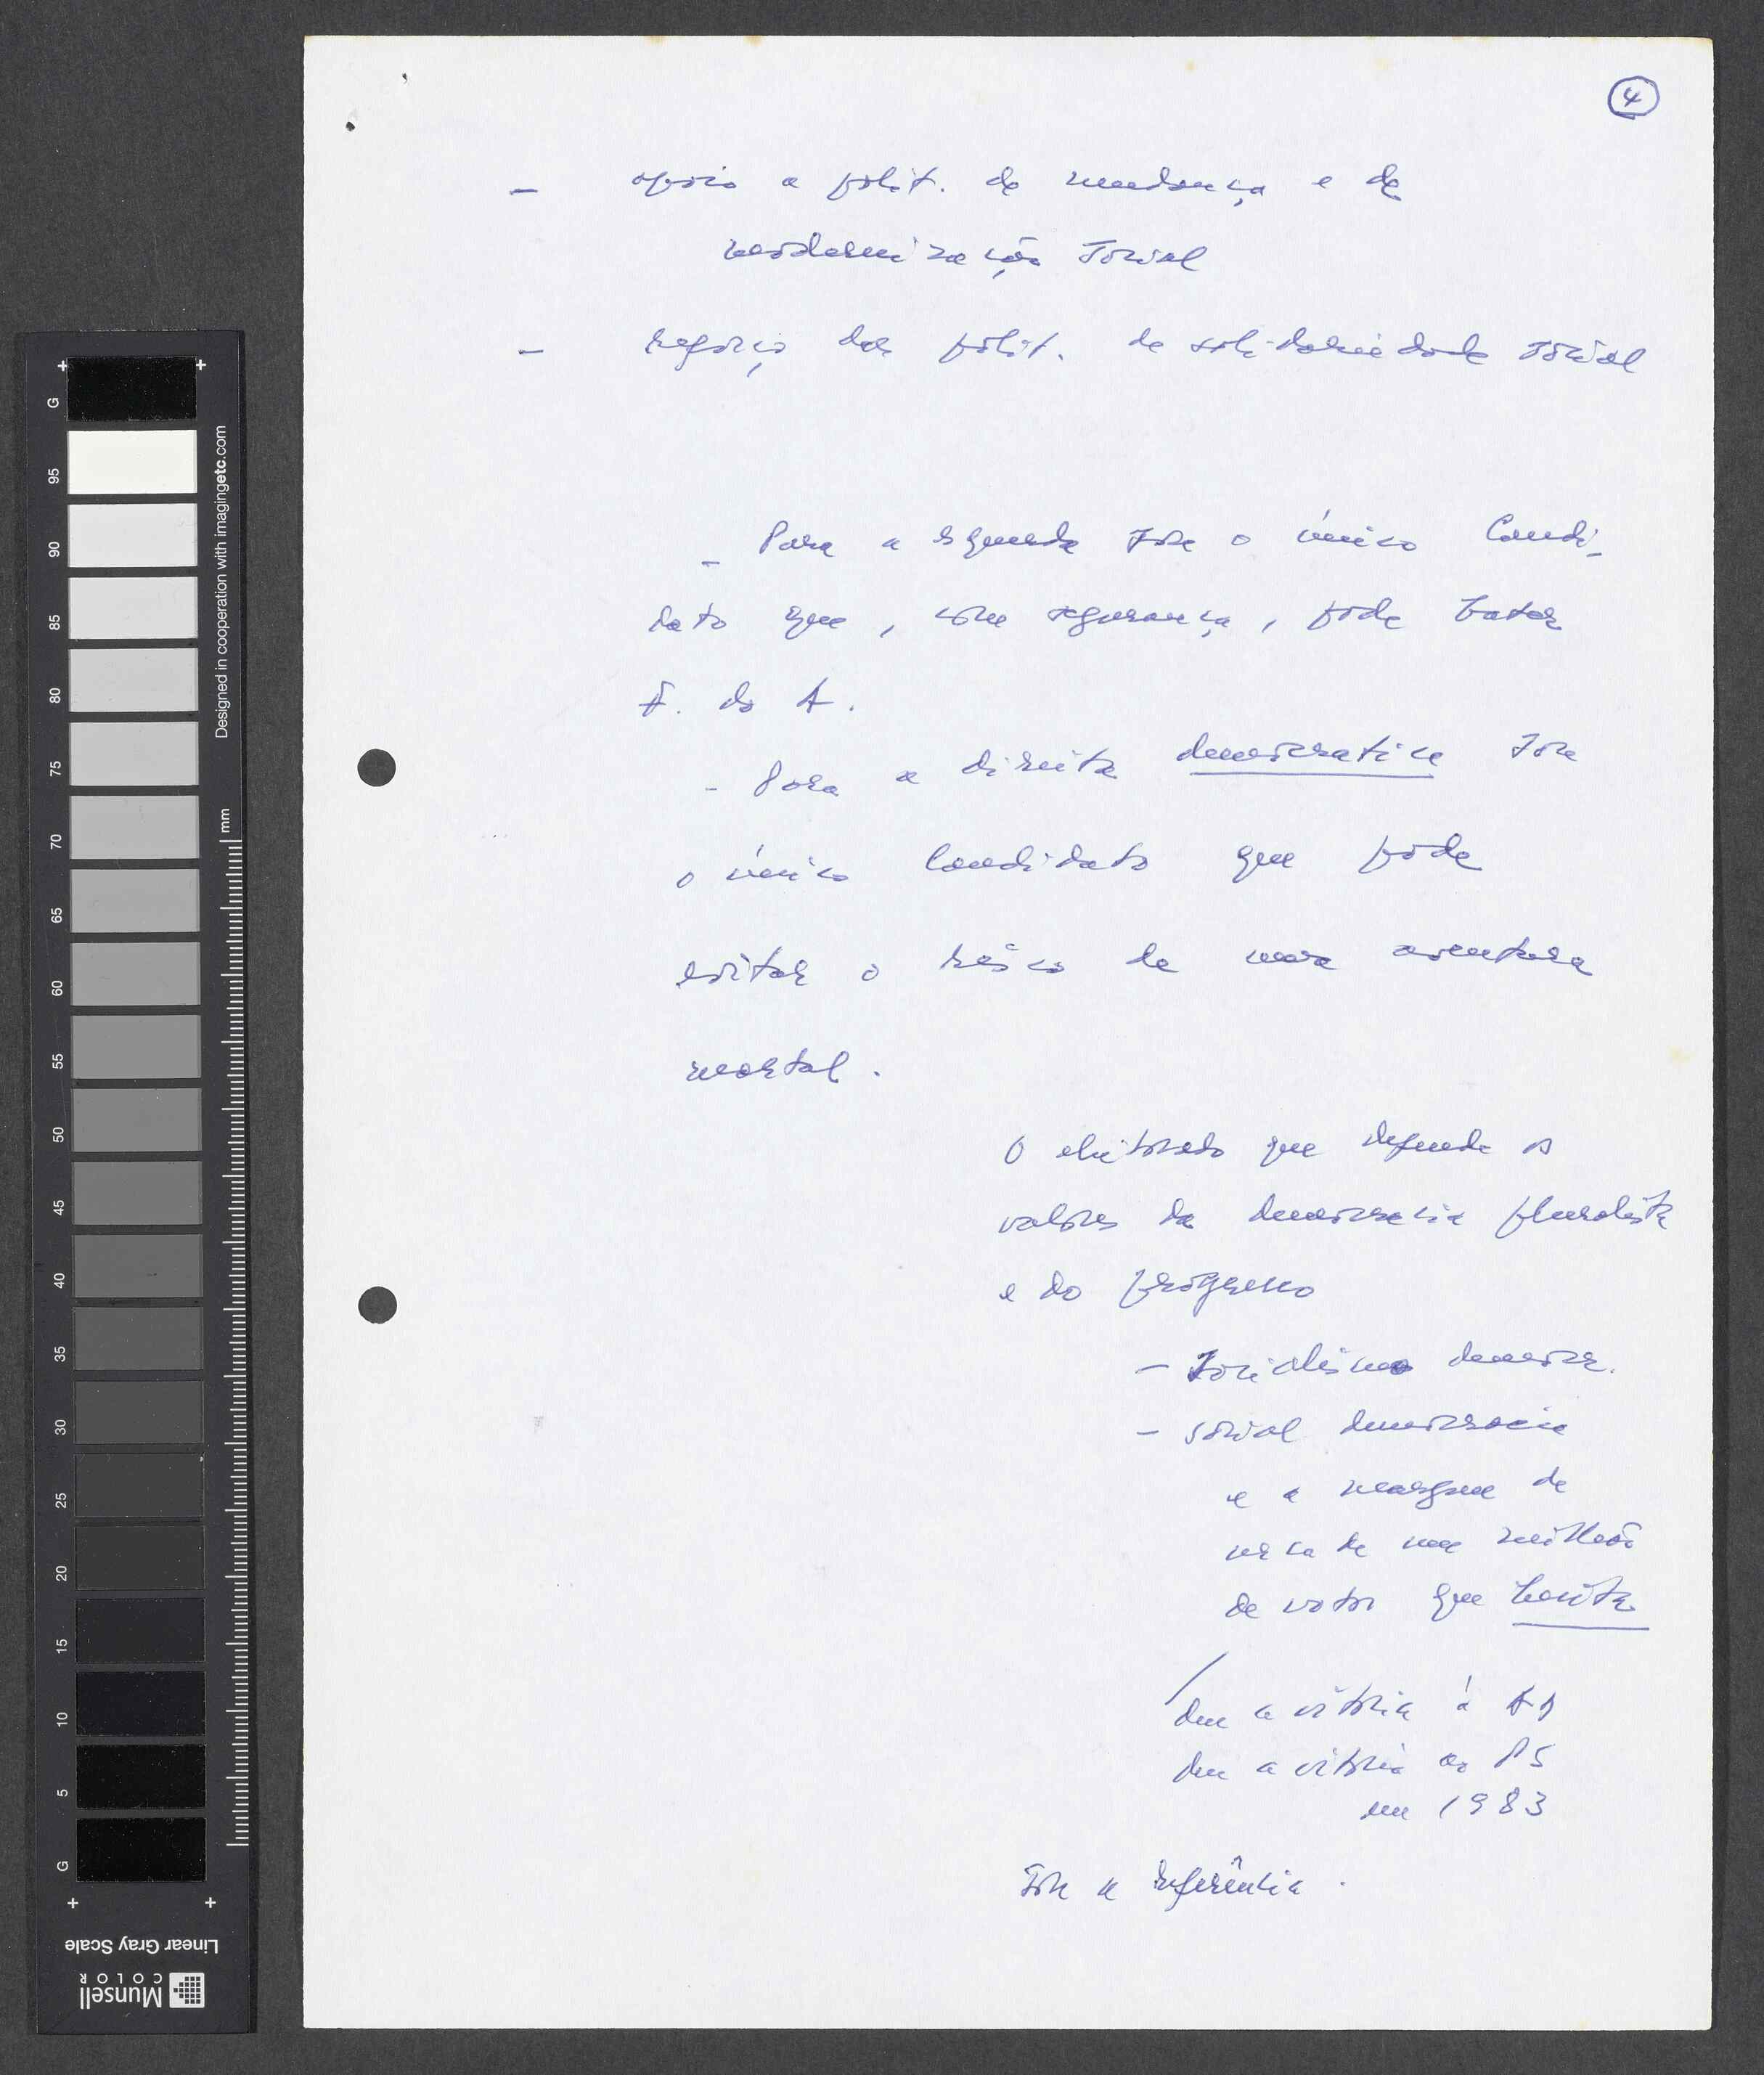 4
- apoio a polit. de mudança e de
modernização social
- reforço das polit. de solidariedade social
- Para a esquerda sou o único Candi-
dato que, com segurança, pode bater
F. do A.
- Para a direita democratica sou
o único Candidato que pode
evitar o risco de uma aventura
mortal.
O eleitorado que defende os
valores da democracia pluralista
e do progresso
- Socialismo democr.
- social democracia
e a margem de
cerca de um milhão
de votos que hesita
deu a vitória à AD
deu a vitória ao PS
em 1983
Sou a referência.
G
95
90
85
80
75
70
65
60
55
50
45
40
35
30
25
20
15
10
5
G
Designed in cooperation with imagingetc.com
mm
Linear Gray Scale
Munsell
COLOR